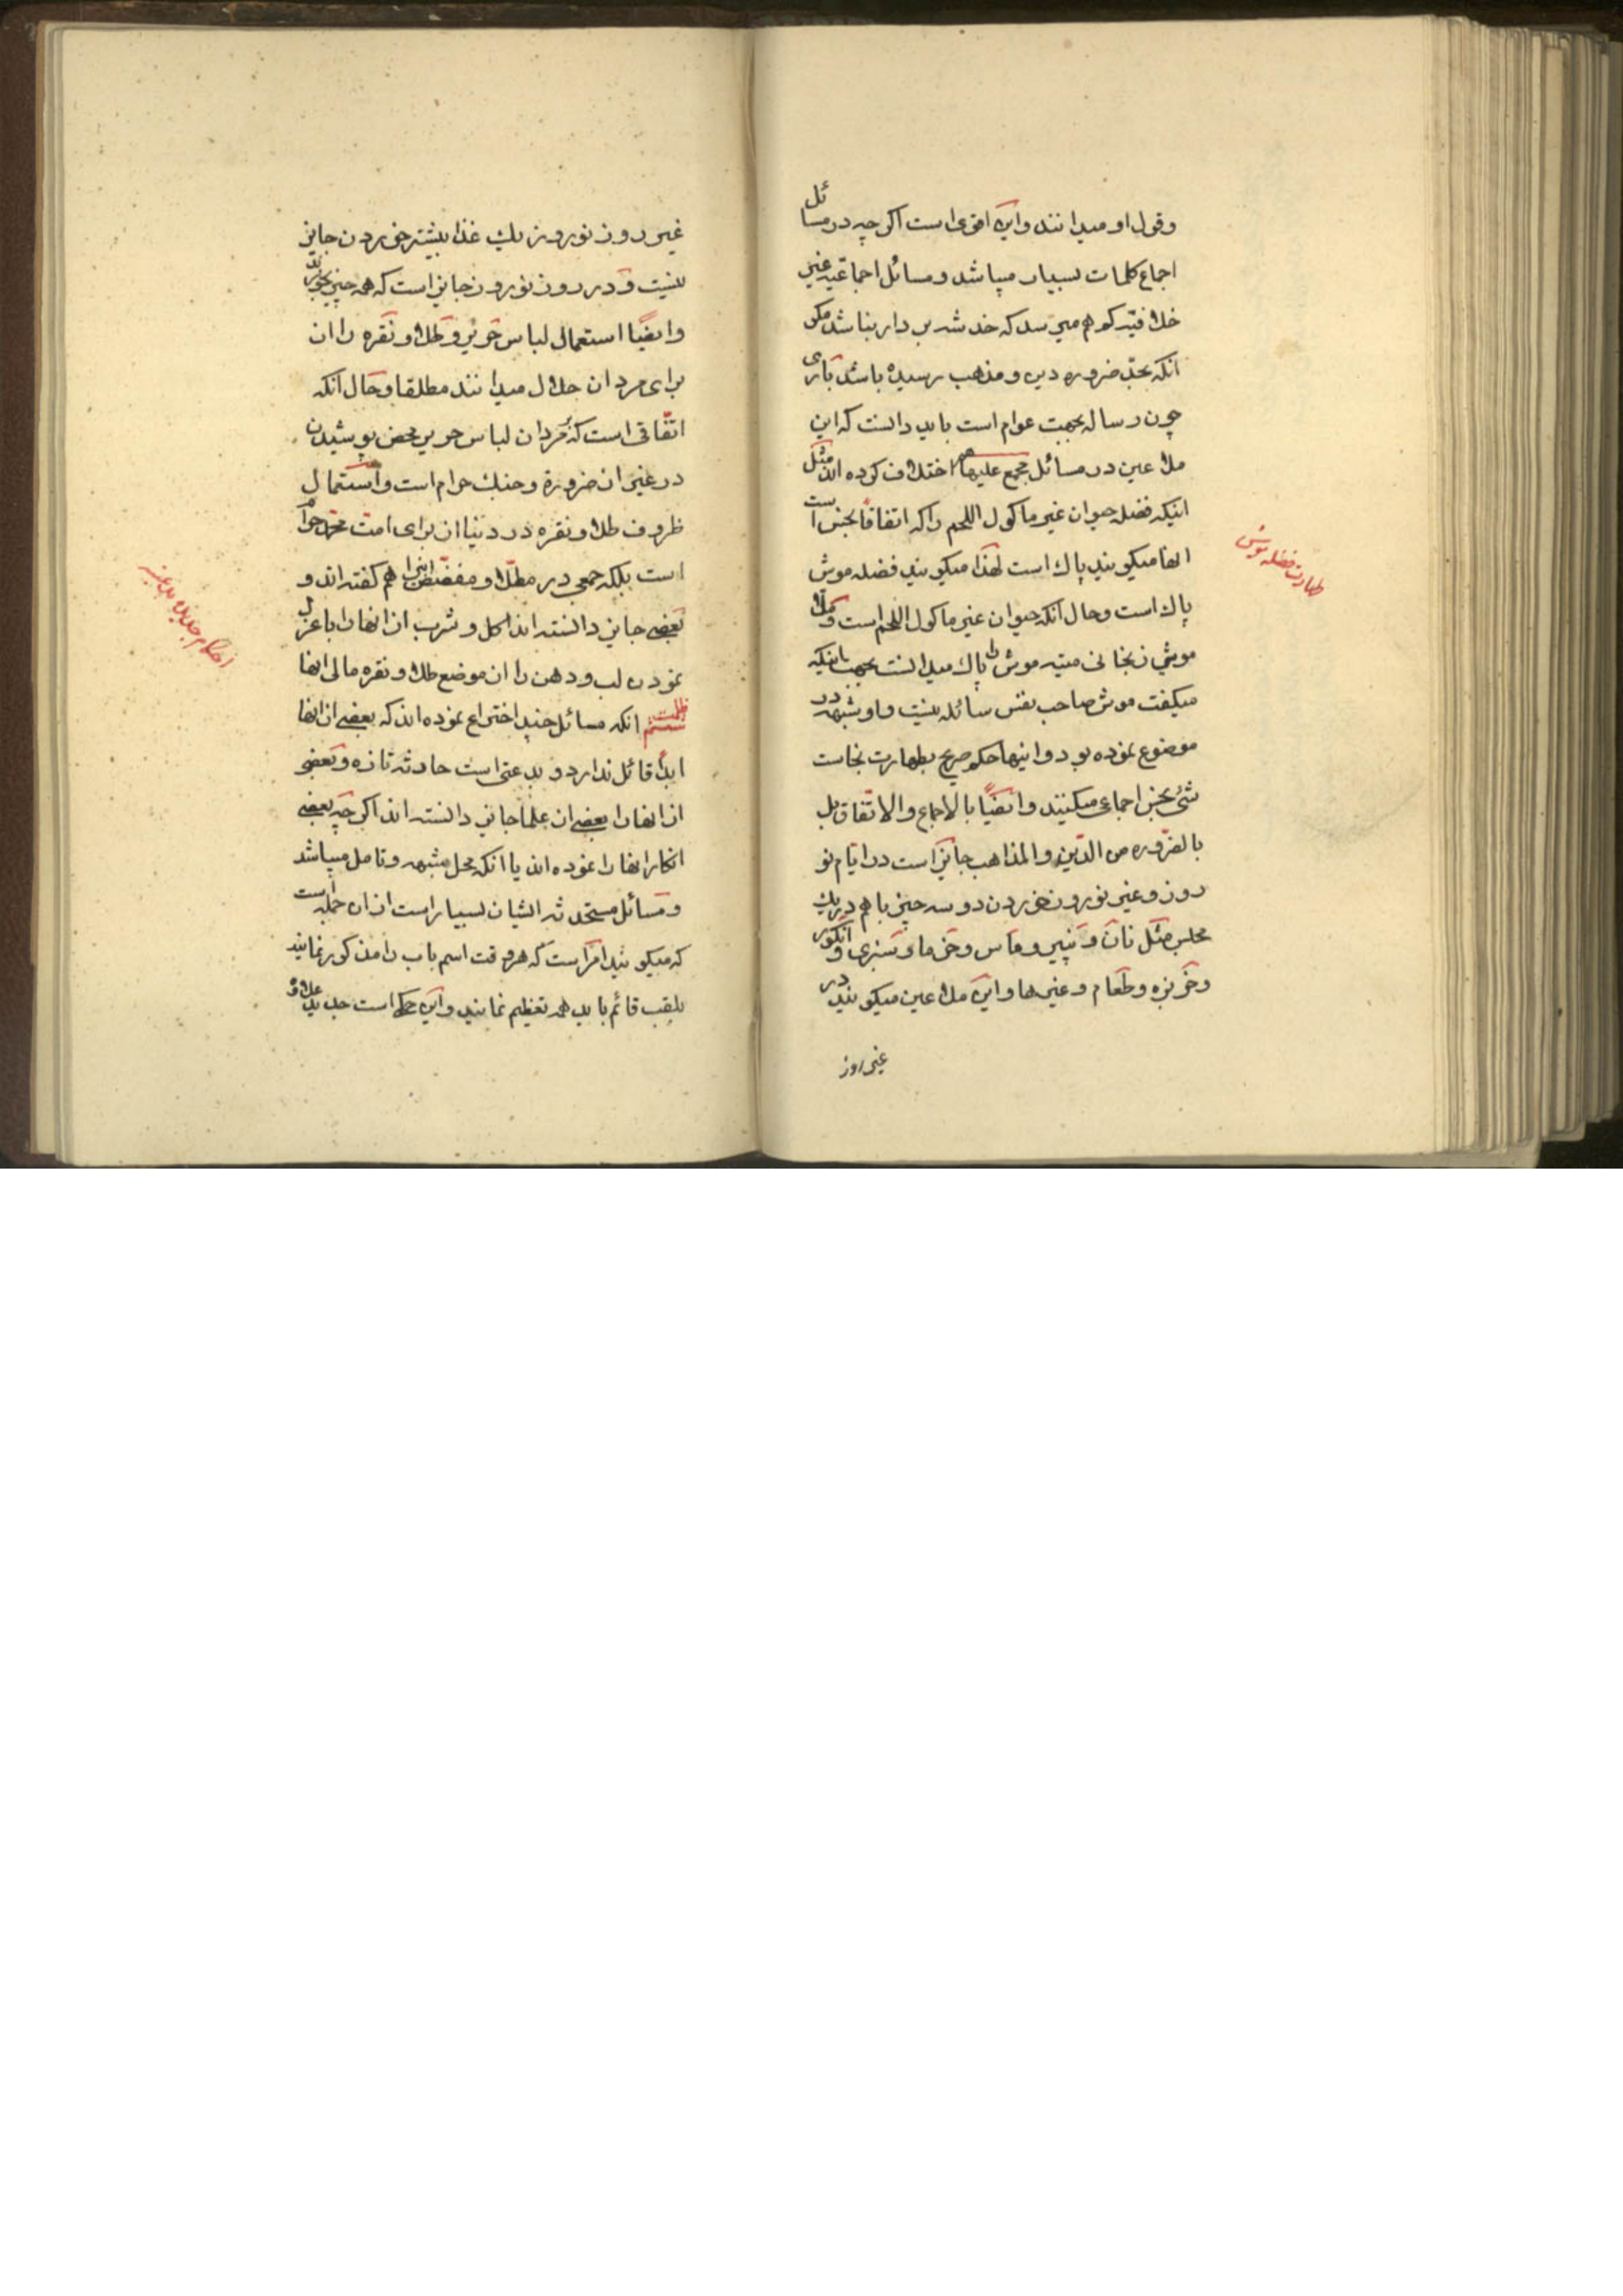 وقول او میدانند واین اقوی است اکرچه در مسائل
اجماع کلمات بسیار میباشد ومسائل اجماعیه غیر
خلافیه کم بهم میرسد که خدشه بردار نباشد مکر
آنکه بحد ضروره دین ومذهب رسیده باشد باری
چون رساله بجهت عوام است باید دانست که این
ملاعین در مسائل مجمع علیها هم اختلاف کرده اند مثل
اینکه فضله حیوان غیر ماکول اللحم را که اتفاقاً نجس است
انها میکویند پاک است لهذا میکویند فضله موش
پاک است وحال آنکه حیوان غیر ماکول اللحم است وملا
موشی زنجانی میته موش را پاک میدانست بجهت اینکه
میکفت موش صاحب نفس سائله نیست واو شبهه در
موضوع نموده بود واینها حکم صریح بطهارت نجاست
شئ نجس اجماعی میکنند وایضاً بالاجماع والاتفاق بل
بالضروره من الدین والمذاهب جایز است در ایام نو
روز وغیر نوروز خوردن دو سه چیز با هم در یک
مجلس مثل نان وپنیر وماس وخرما وسبزی وانکور
وخربزه وطعام وغیرها واین ملاعین میکویند در
غیر روز
طهارت فضله موش
غیر روز نوروز یک غذا بیشتر خوردن جایز
نیست ودر روز نوروز جایز است که همه چیز بخورند
وایضاً استعمال لباس حریر وطلا ونقره را از
برای مردان حلال میدانند مطلقا وحال آنکه
اتفاقی است که مردان لباس حریر محض پوشیدن
در غیر از ضرورة وجنک حرام است واستعمال
ظروف طلا ونقره در دنیا از برای امت همه حرام
است بلکه جمعی در مطلا ومفضض اینرا هم کفته اند و
بعضی جایز دانسته اند اکل وشرب از انها را با عزل
نمودن لب ودهن را از موضع طلا ونقره مالی انها
ظلمت ششم انکه مسائل چند اختراع نموده اند که بعضی از انها
ابداً قائل ندارد وبدعتی است حادثه تازه وبعضی
از انها را بعضی از علما جایز دانسته اند اکرچه بعضی
انکار انها را نموده اند یا انکه محل شبهه وتامل میباشد
ومسائل مستحدثه ایشان بسیار است از ان جمله است
که میکویند امر است که هر وقت اسم باب را مذکور نمایند
بلقب قائم باید همه تعظیم نمایند واین حکم است جدید علاوه
احکام جدیده بدعتیه